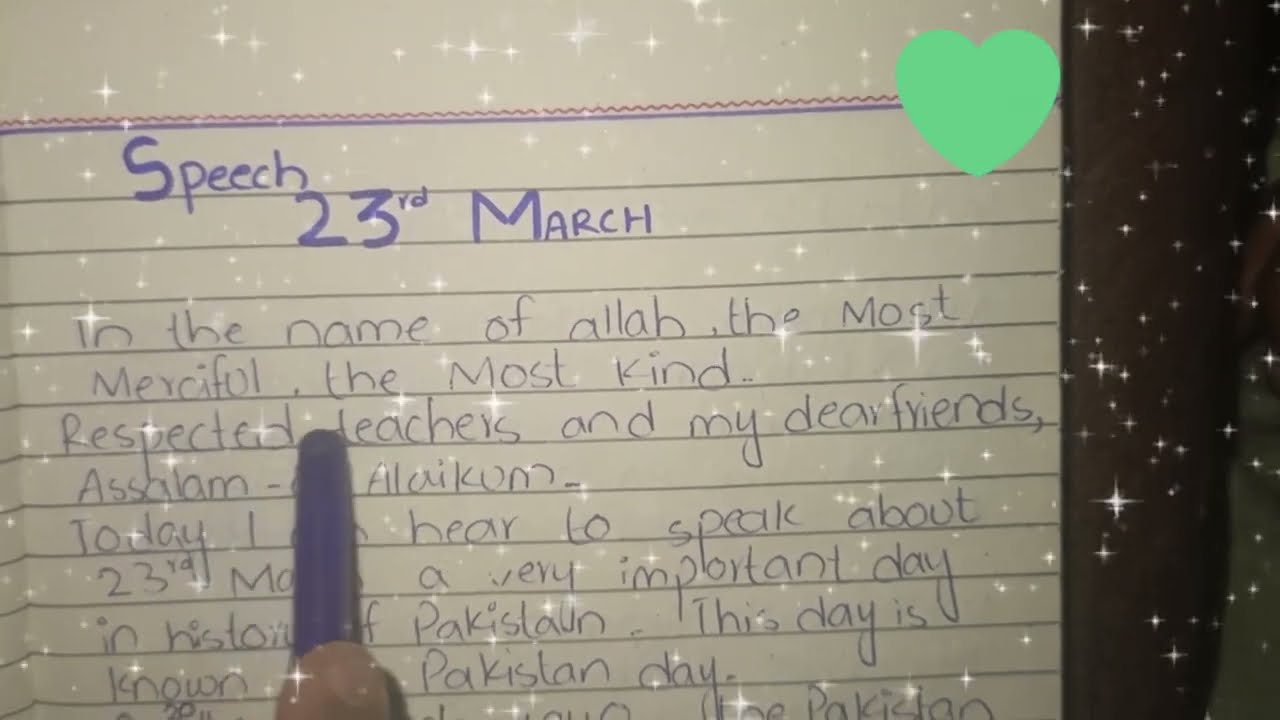 Speech
23rd MARCH
In the name of allah, the Most
Merciful, the Most kind..
Respected teachers and my dear friends,
Assalam - Alaikum -
Today I hear to speak about
23rd a very important day
in of Pakistan. This day is
known Pakistan day.
the Pakistan